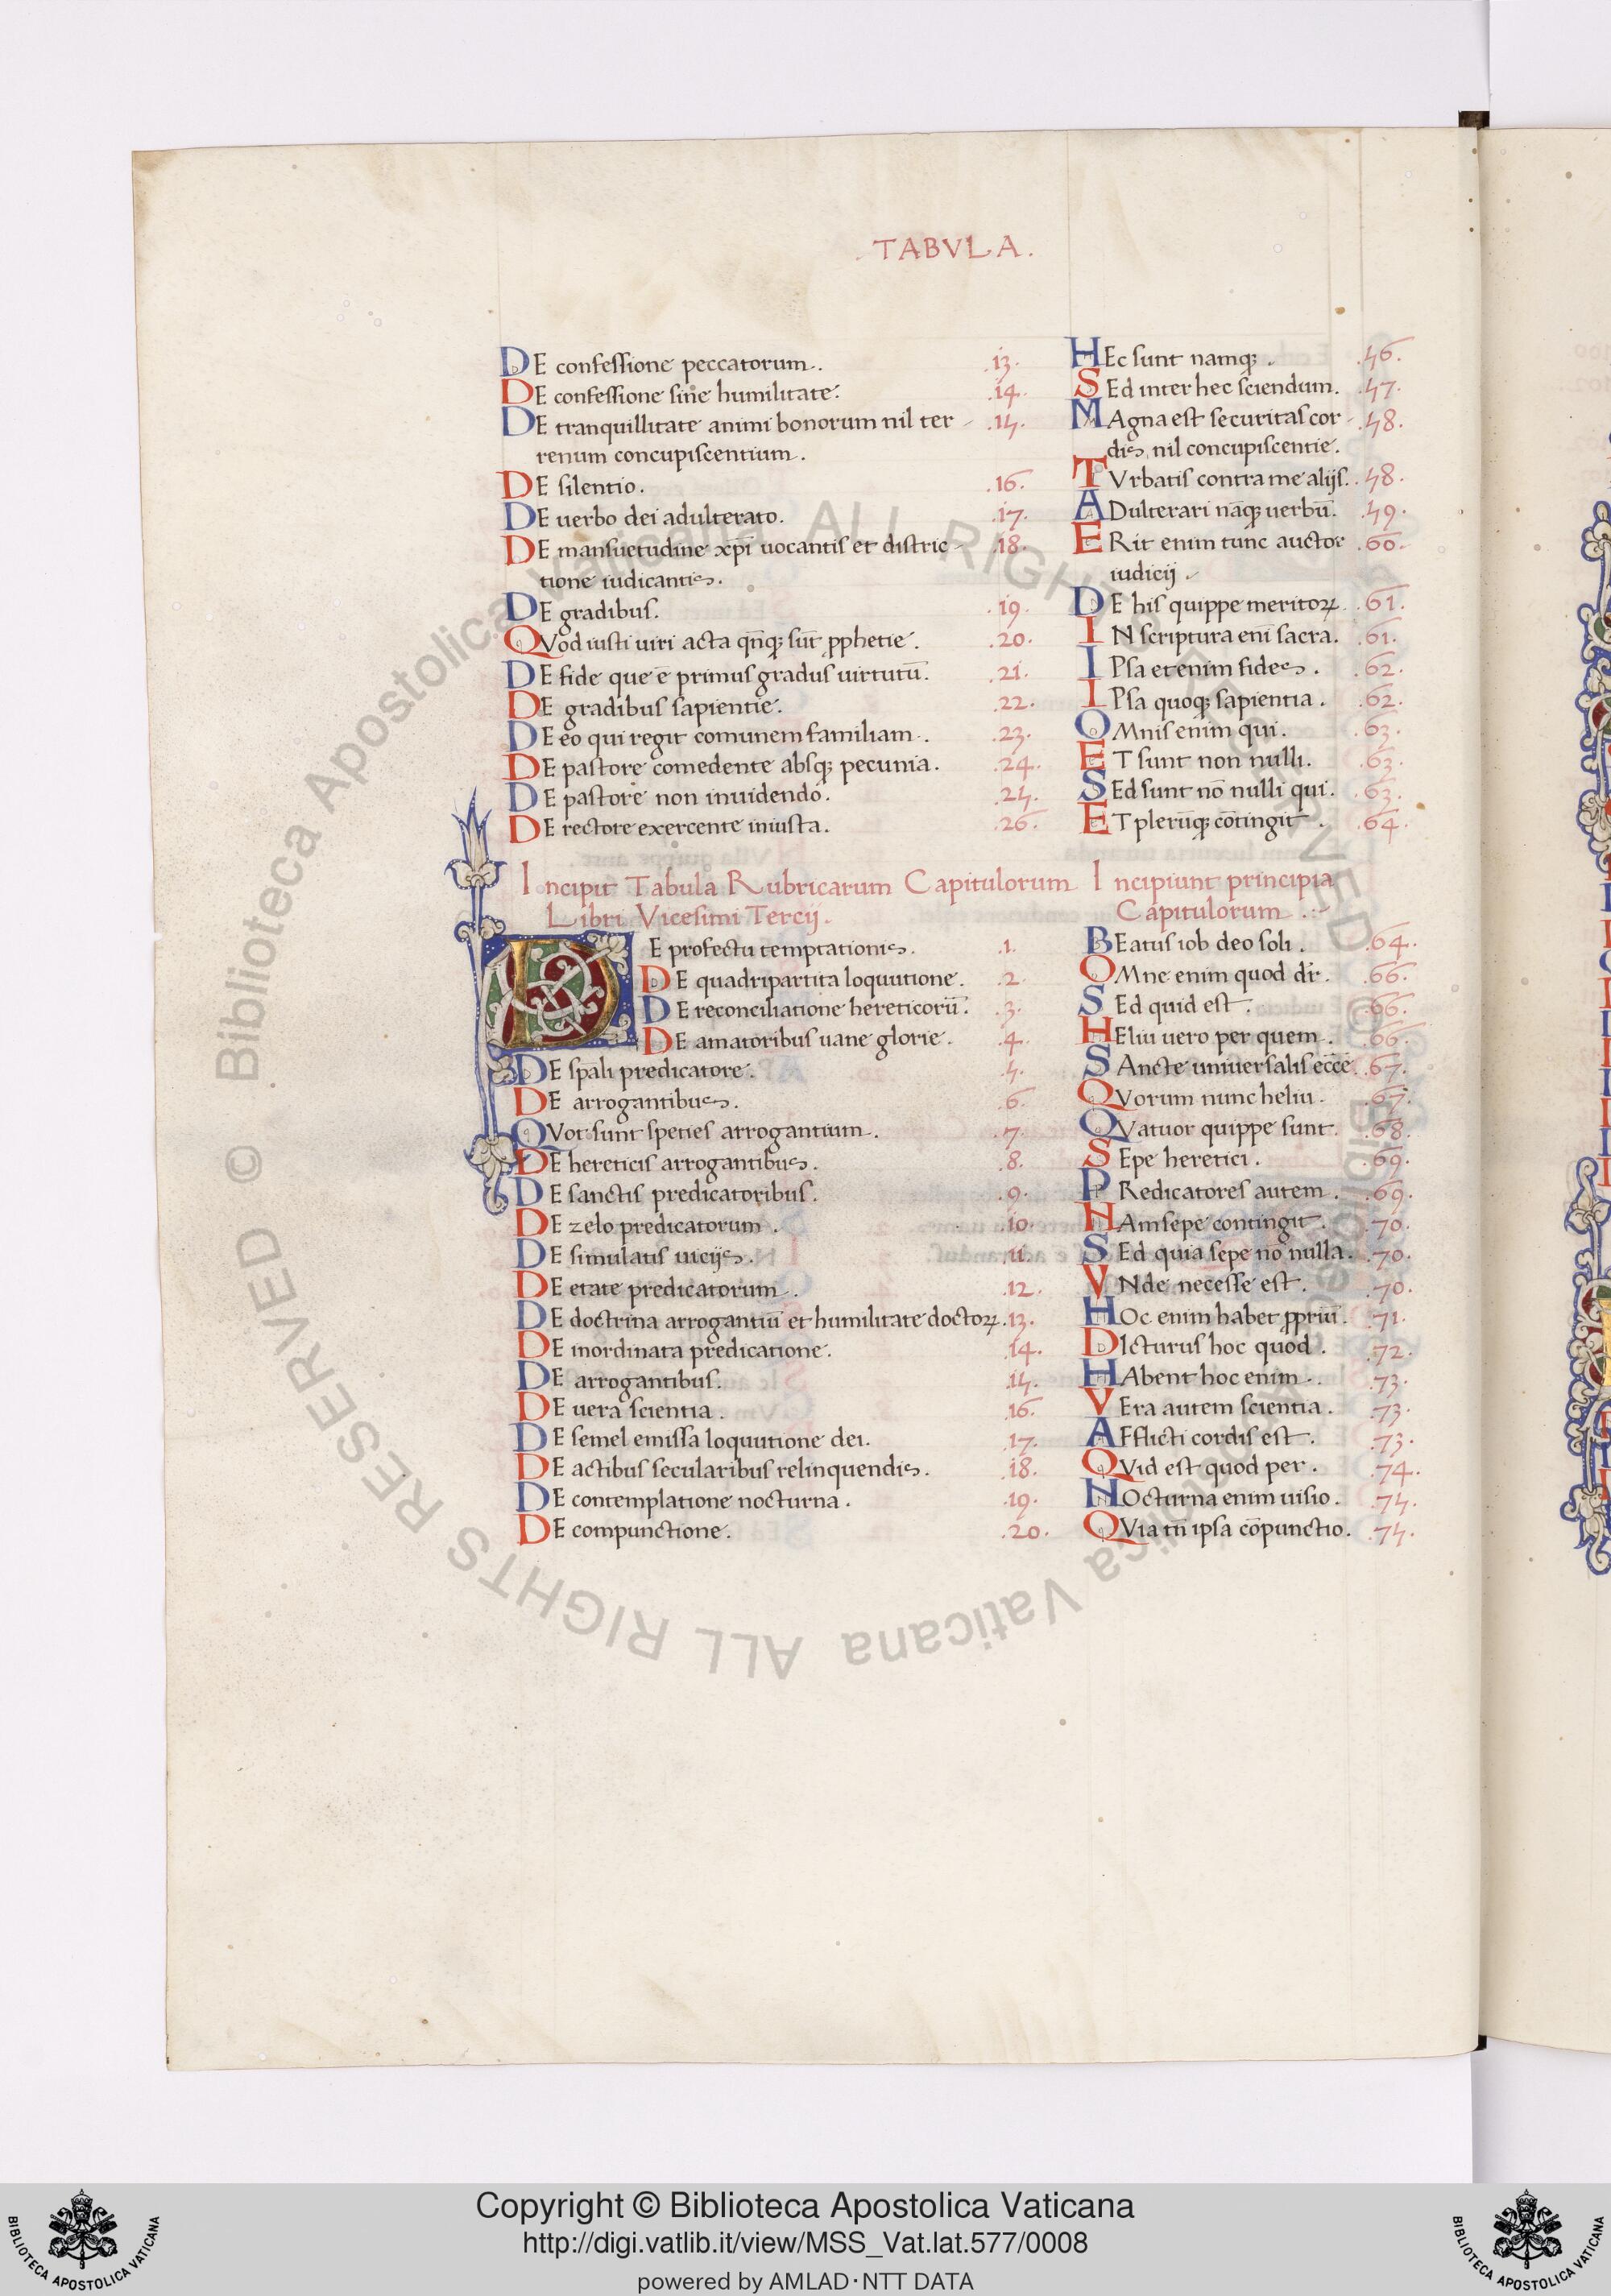 TABVLA.
DE confessione peccatorum. .13.
DE confessione sine humilitate. .14.
DE tranquillitate animi bonorum nil ter- .15.
renum concupiscentium.
DE silentio. .16.
DE uerbo dei adulterato. .17.
DE mansuetudine xp̄i uocantis et distric- .18.
tione iudicantis.
DE gradibus. .19.
QVod iusti uiri acta qn̄q; sūt ꝓphetie. .20.
DE fide que ē primus gradus uirtutū. .21.
DE gradibus sapientie. .22.
DE eo qui regit comunem familiam. .23.
DE pastore comedente absq; pecunia. .24.
DE pastore non inuidendo. .25.
DE rectore exercente iniusta. .26.
HEc sunt namq;. .56.
SEd inter hec sciendum. .57.
MAgna est securitas cor- .58.
dis, nil concupiscentie.
TVrbatis contra me alijs. .58.
ADulterari nāq; uerbū. .59.
ERit enim tunc auctor .60.
iudicij.
DE his quippe meritoꝝ. .61.
IN scriptura eni sacra. .61.
IPsa etenim fides. .62.
IPsa quoq; sapientia. .62.
OMnis enim qui. .63.
ET sunt non nulli. .63.
SEd sunt nō nulli qui. .63.
ET plerūq; cōtingit. .64.
Incipit Tabula Rubricarum Capitulorum
Libri Vicesimi Tercij.
DE profectu temptationis. .1.
DE quadripartita loquutione. .2.
DE reconciliatione hereticorū. .3.
DE amatoribus uane glorie. .4.
DE sp̄ali predicatore. .5.
DE arrogantibus. .6.
QVot sunt speties arrogantium. .7.
DE hereticis arrogantibus. .8.
DE sanctis predicatoribus. .9.
DE zelo predicatorum. .10.
DE simulatis uicijs. .11.
DE etate predicatorum. .12.
DE doctrina arrogantiū et humilitate doctoꝝ. .13.
DE inordinata predicatione. .14.
DE arrogantibus. .15.
DE uera scientia. .16.
DE semel emissa loquutione dei. .17.
DE actibus secularibus relinquendis. .18.
DE contemplatione nocturna. .19.
DE compunctione. .20.
Incipiunt principia
Capitulorum.
BEatus iob deo soli. .65.
OMne enim quod dr̄. .66.
SEd quid est. .66.
HEliu uero per quem. .66.
SAncte uniuersalis ecc̄e. .67.
QVorum nunc heliu. .67.
QVatuor quippe sunt. .68.
SEpe heretici. .69.
PRedicatores autem. .69.
NAm sepe contingit. .70.
SEd quia sepe nō nulla. .70.
VNde necesse est. .70.
HOc enim habet ꝓpriū. .71.
DIcturus hoc quod. .72.
HAbent hoc enim. .73.
VEra autem scientia. .73.
AFflicti cordis est. .73.
QVid est quod per. .74.
NOcturna enim uisio. .75.
QVia tn̄ ipsa cōpunctio. .75.
© Biblioteca Apostolica Vaticana ALL RIGHTS RESERVED © Biblioteca Apostolica Vaticana ALL RIGHTS RESERVED
Copyright © Biblioteca Apostolica Vaticana
http://digi.vatlib.it/view/MSS_Vat.lat.577/0008
powered by AMLAD·NTT DATA
BIBLIOTECA APOSTOLICA VATICANA
BIBLIOTECA APOSTOLICA VATICANA